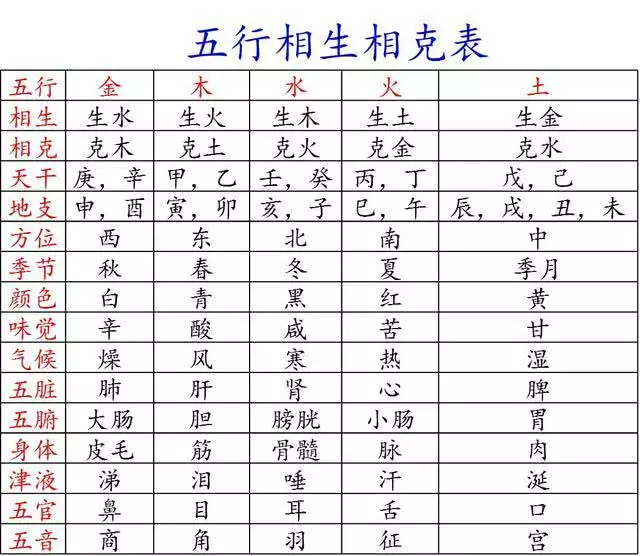 五行相生相克表
五行 金 木 水 火 土
相生 生水 生火 生木 生土 生金
相克 克木 克土 克火 克金 克水
天干 庚，辛 甲，乙 壬，癸 丙，丁 戊，己
地支 申，酉 寅，卯 亥，子 巳，午 辰，戌，丑，未
方位 西 东 北 南 中
季节 秋 春 冬 夏 季月
颜色 白 青 黑 红 黄
味觉 辛 酸 咸 苦 甘
气候 燥 风 寒 热 湿
五脏 肺 肝 肾 心 脾
五腑 大肠 胆 膀胱 小肠 胃
身体 皮毛 筋 骨髓 脉 肉
津液 涕 泪 唾 汗 涎
五官 鼻 目 耳 舌 口
五音 商 角 羽 征 宫